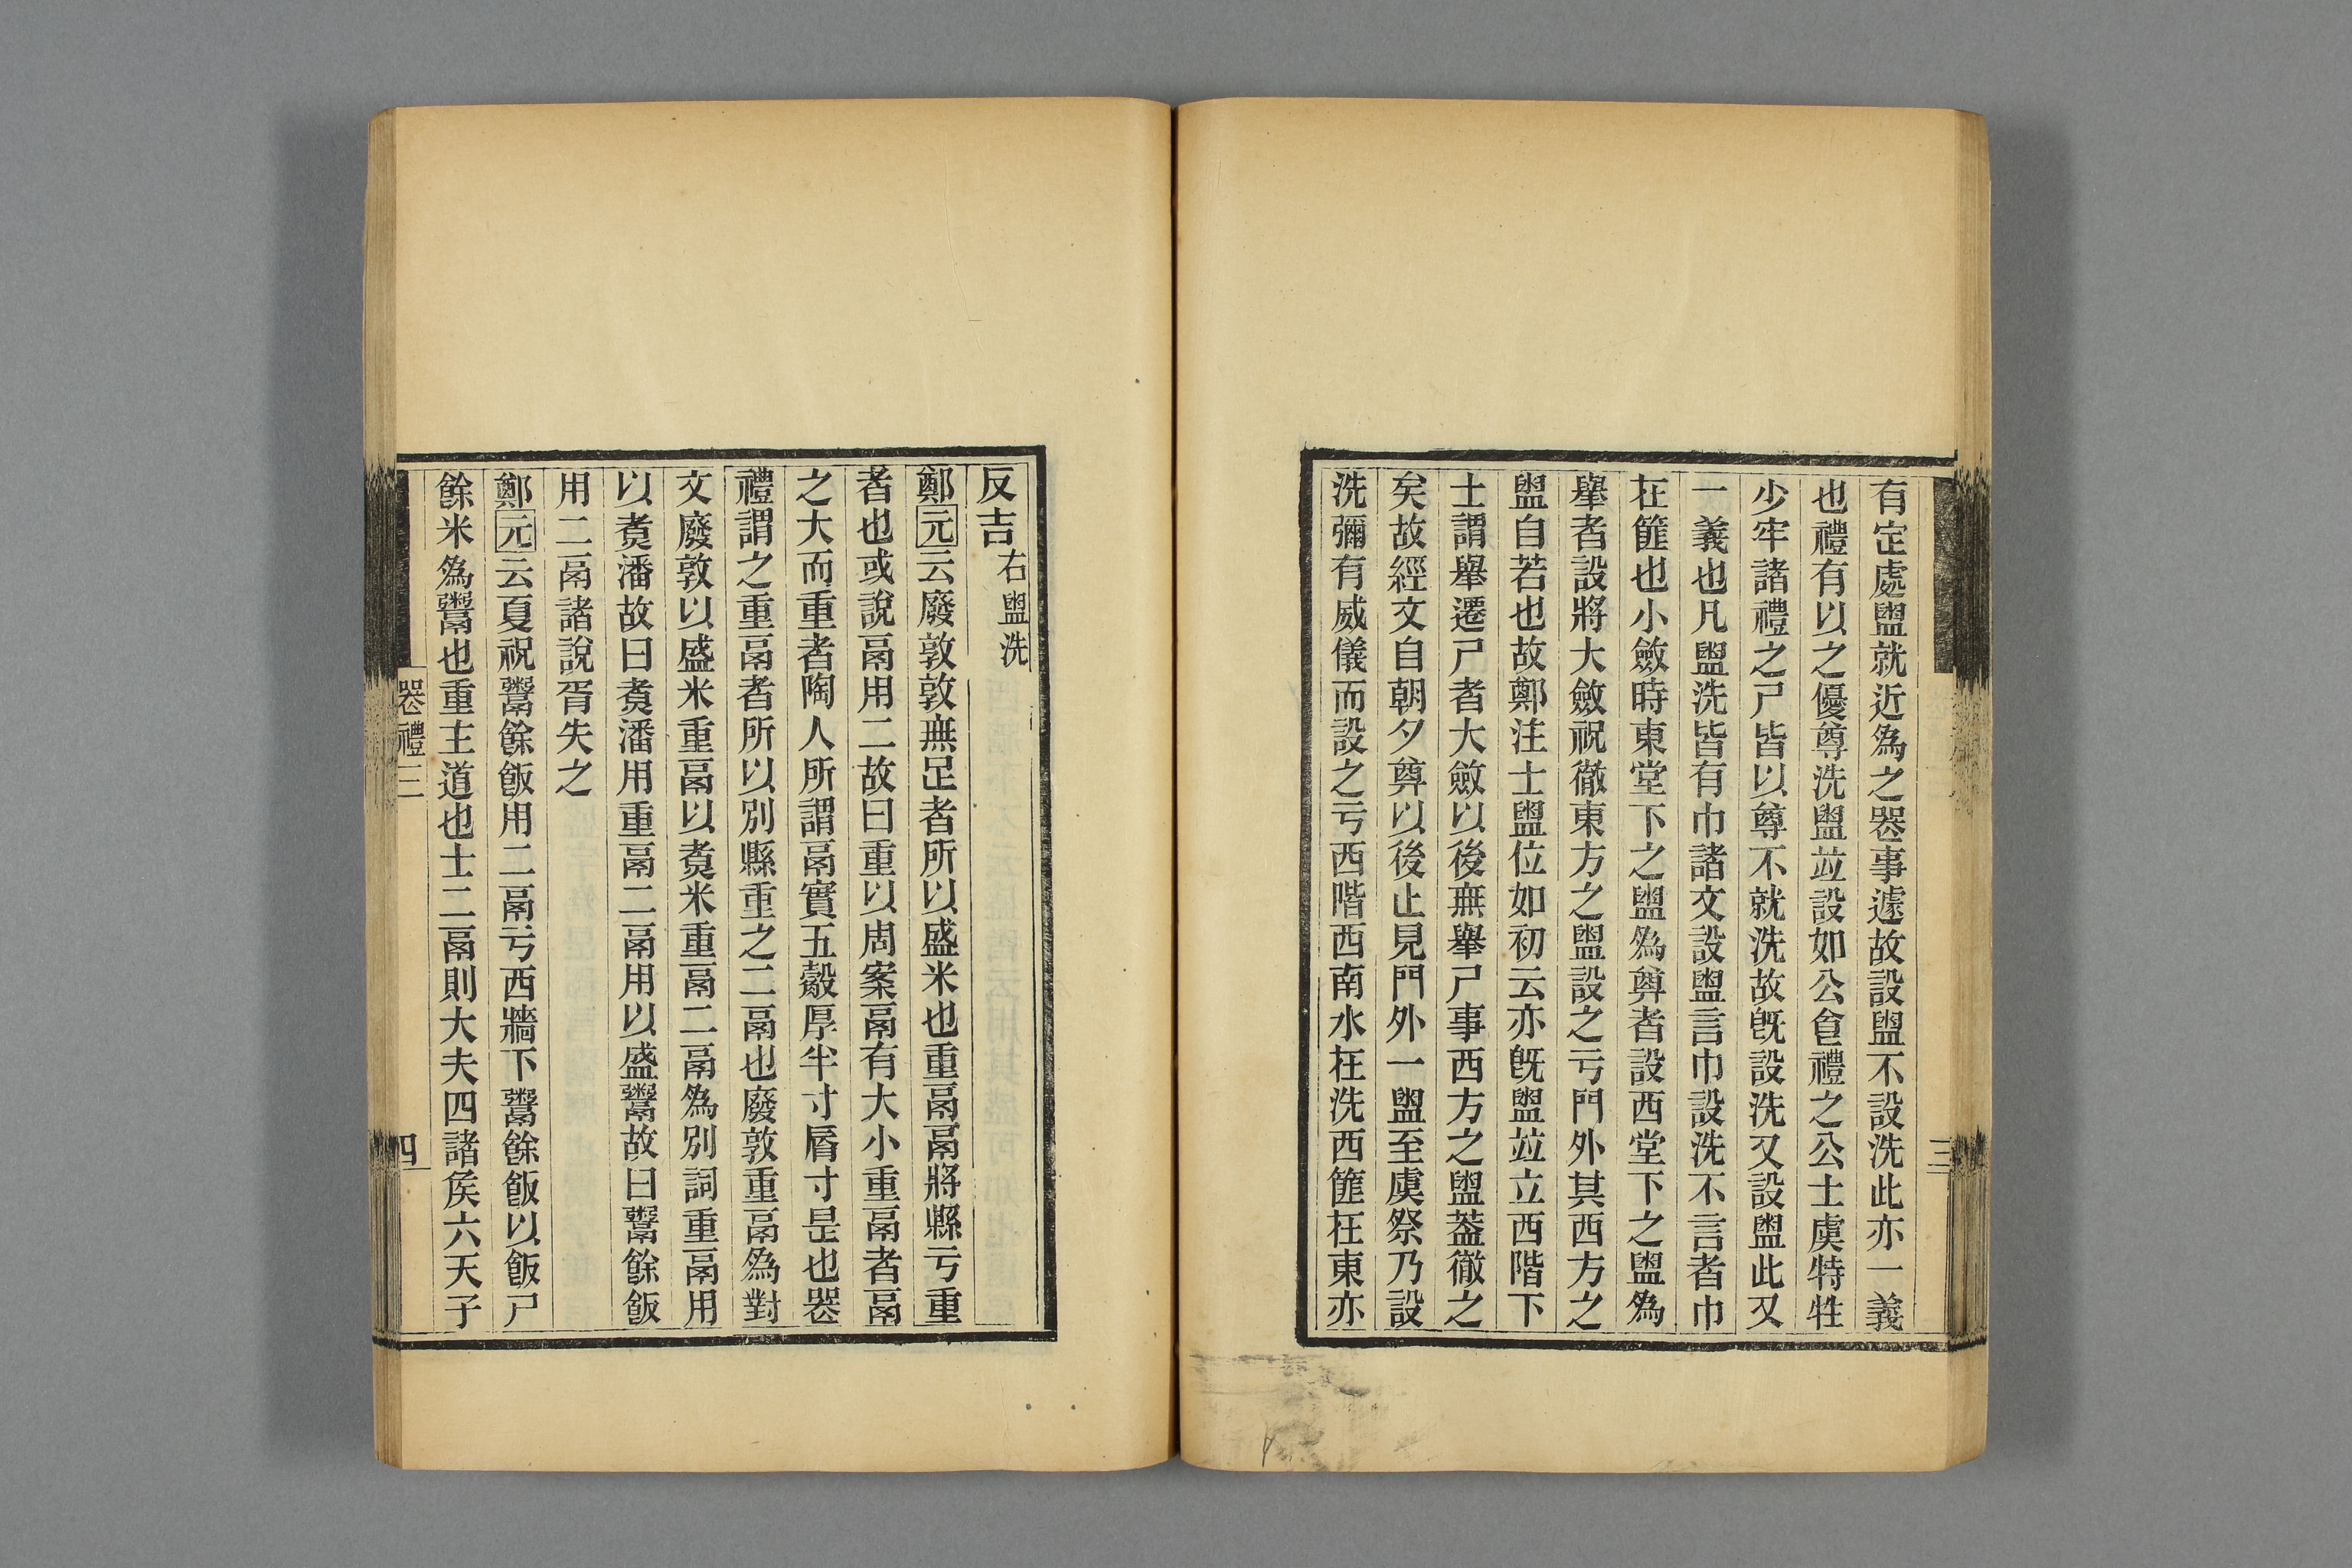 有定處盥就近爲之器事遽故設盥不設洗此亦一義
也禮有以之優尊洗盥竝設如公食禮之公士虞特牲
少牢諸禮之尸皆以尊不就洗故旣設洗又設盥此又
一義也凡盥洗皆有巾諸文設盥言巾設洗不言者巾
在篚也小斂時東堂下之盥爲奠者設西堂下之盥爲
舉者設將大斂祝徹東方之盥設之亏門外其西方之
盥自若也故鄭注士盥位如初云亦旣盥竝立西階下
士謂舉遷尸者大斂以後無舉尸事西方之盥葢徹之
矣故經文自朝夕尊以後止見門外一盥至虞祭乃設
洗彌有威儀而設之亏西階西南水在洗西篚在東亦
三
反吉 右盥洗
鄭元云廢敦敦無足者所以盛米也重鬲鬲將縣亏重
者也或說鬲用二故曰重以周案鬲有大小重鬲者鬲
之大而重者陶人所謂鬲實五觳厚半寸脣寸是也器
禮謂之重鬲者所以別縣重之二鬲也廢敦重鬲爲對
文廢敦以盛米重鬲以煑米重鬲二鬲爲別詞重鬲用
以煑潘故曰煑潘用重鬲二鬲用以盛鬻故曰鬻餘飯
用二鬲諸說胥失之
鄭元云夏祝鬻餘飯用二鬲亏西牆下鬻餘飯以飯尸
餘米爲鬻也重主道也士二鬲則大夫四諸侯六天子
器禮三
四